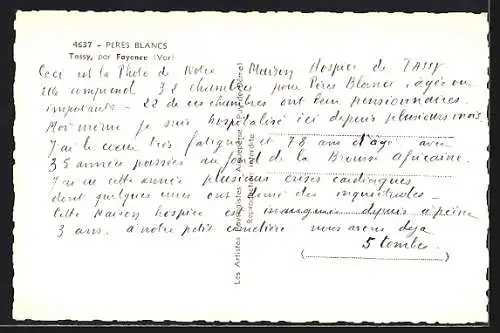 4637 - PERES BLANCS
Tassy, par Fayence (Var)
Ceci est la Photo de Notre Maison Hospice de TASSY.
elle comprend 32 chambres pour Pères Blancs âgés ou
impotents - 22 de ces chambres ont leur pensionnaires.
Moi même je suis hospitalisé ici depuis plusieurs mois
J'ai le coeur très fatigué et 78 ans d'âge avec
35 années passées au fond de la Brousse Africaine.
J'ai eu cette année plusieurs crises cardiaques
dont quelques unes ont donné des inquiétudes
Cette Maison hospice est inaugurée depuis à peine
3 ans. à notre petit cimetière nous avons déjà
5 tombes
Les Artistes
Reproduction interdite